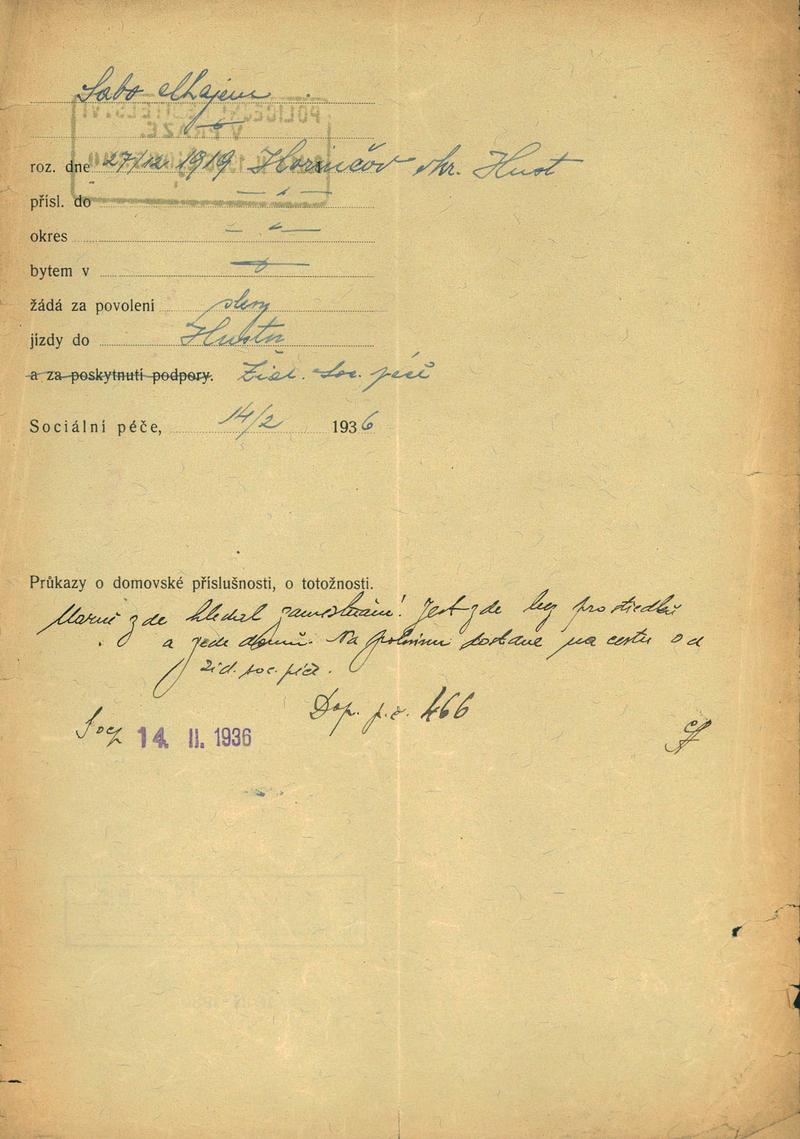 Sabo Chajem
roz. dne 27/12 1919 Horinčov okr. Hust
přísl. do — " —
okres — " —
bytem v
žádá za povolení slevy
jízdy do Hustu
a za poskytnutí podpory. Žid. soc. péče
Sociální péče, 14/2 1936
Průkazy o domovské příslušnosti, o totožnosti.
Marně zde hledal zaměstnání! Jest zde bez prostředků
a jede domů. Na potravu dostane na cestu od
žid. soc. péče.
Dop. p. č. 466
14. II. 1936